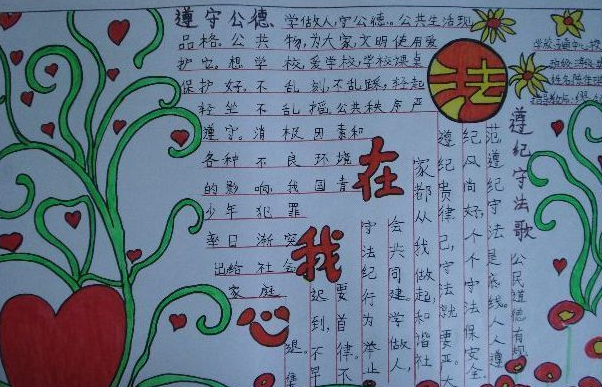 遵守公德 学做人,守公德。公共生活现
品格。公共物,为大家,文明使用爱
护它。想学校,爱学校,学校课桌
保护好。不乱刻,不乱踩,轻起
轻坐不乱摇。公共秩序严
遵守。消极因素和
各种不良环境
的影响,我国青
少年犯罪
率日渐突
出给社会
家庭
法
在
我
心
遵纪守法歌
公民道德有规
范遵纪守法是底线。人人遵
纪风尚好,个个守法保安全。
遵纪贵律己守法就要正。大
家都从我做起,和谐社
会共同建。学做人,
守法纪,行为举止
要首律。不
迟到,不早
退。